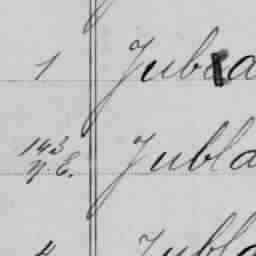 1 Jubla
143 N.E. Jubla
Jubla